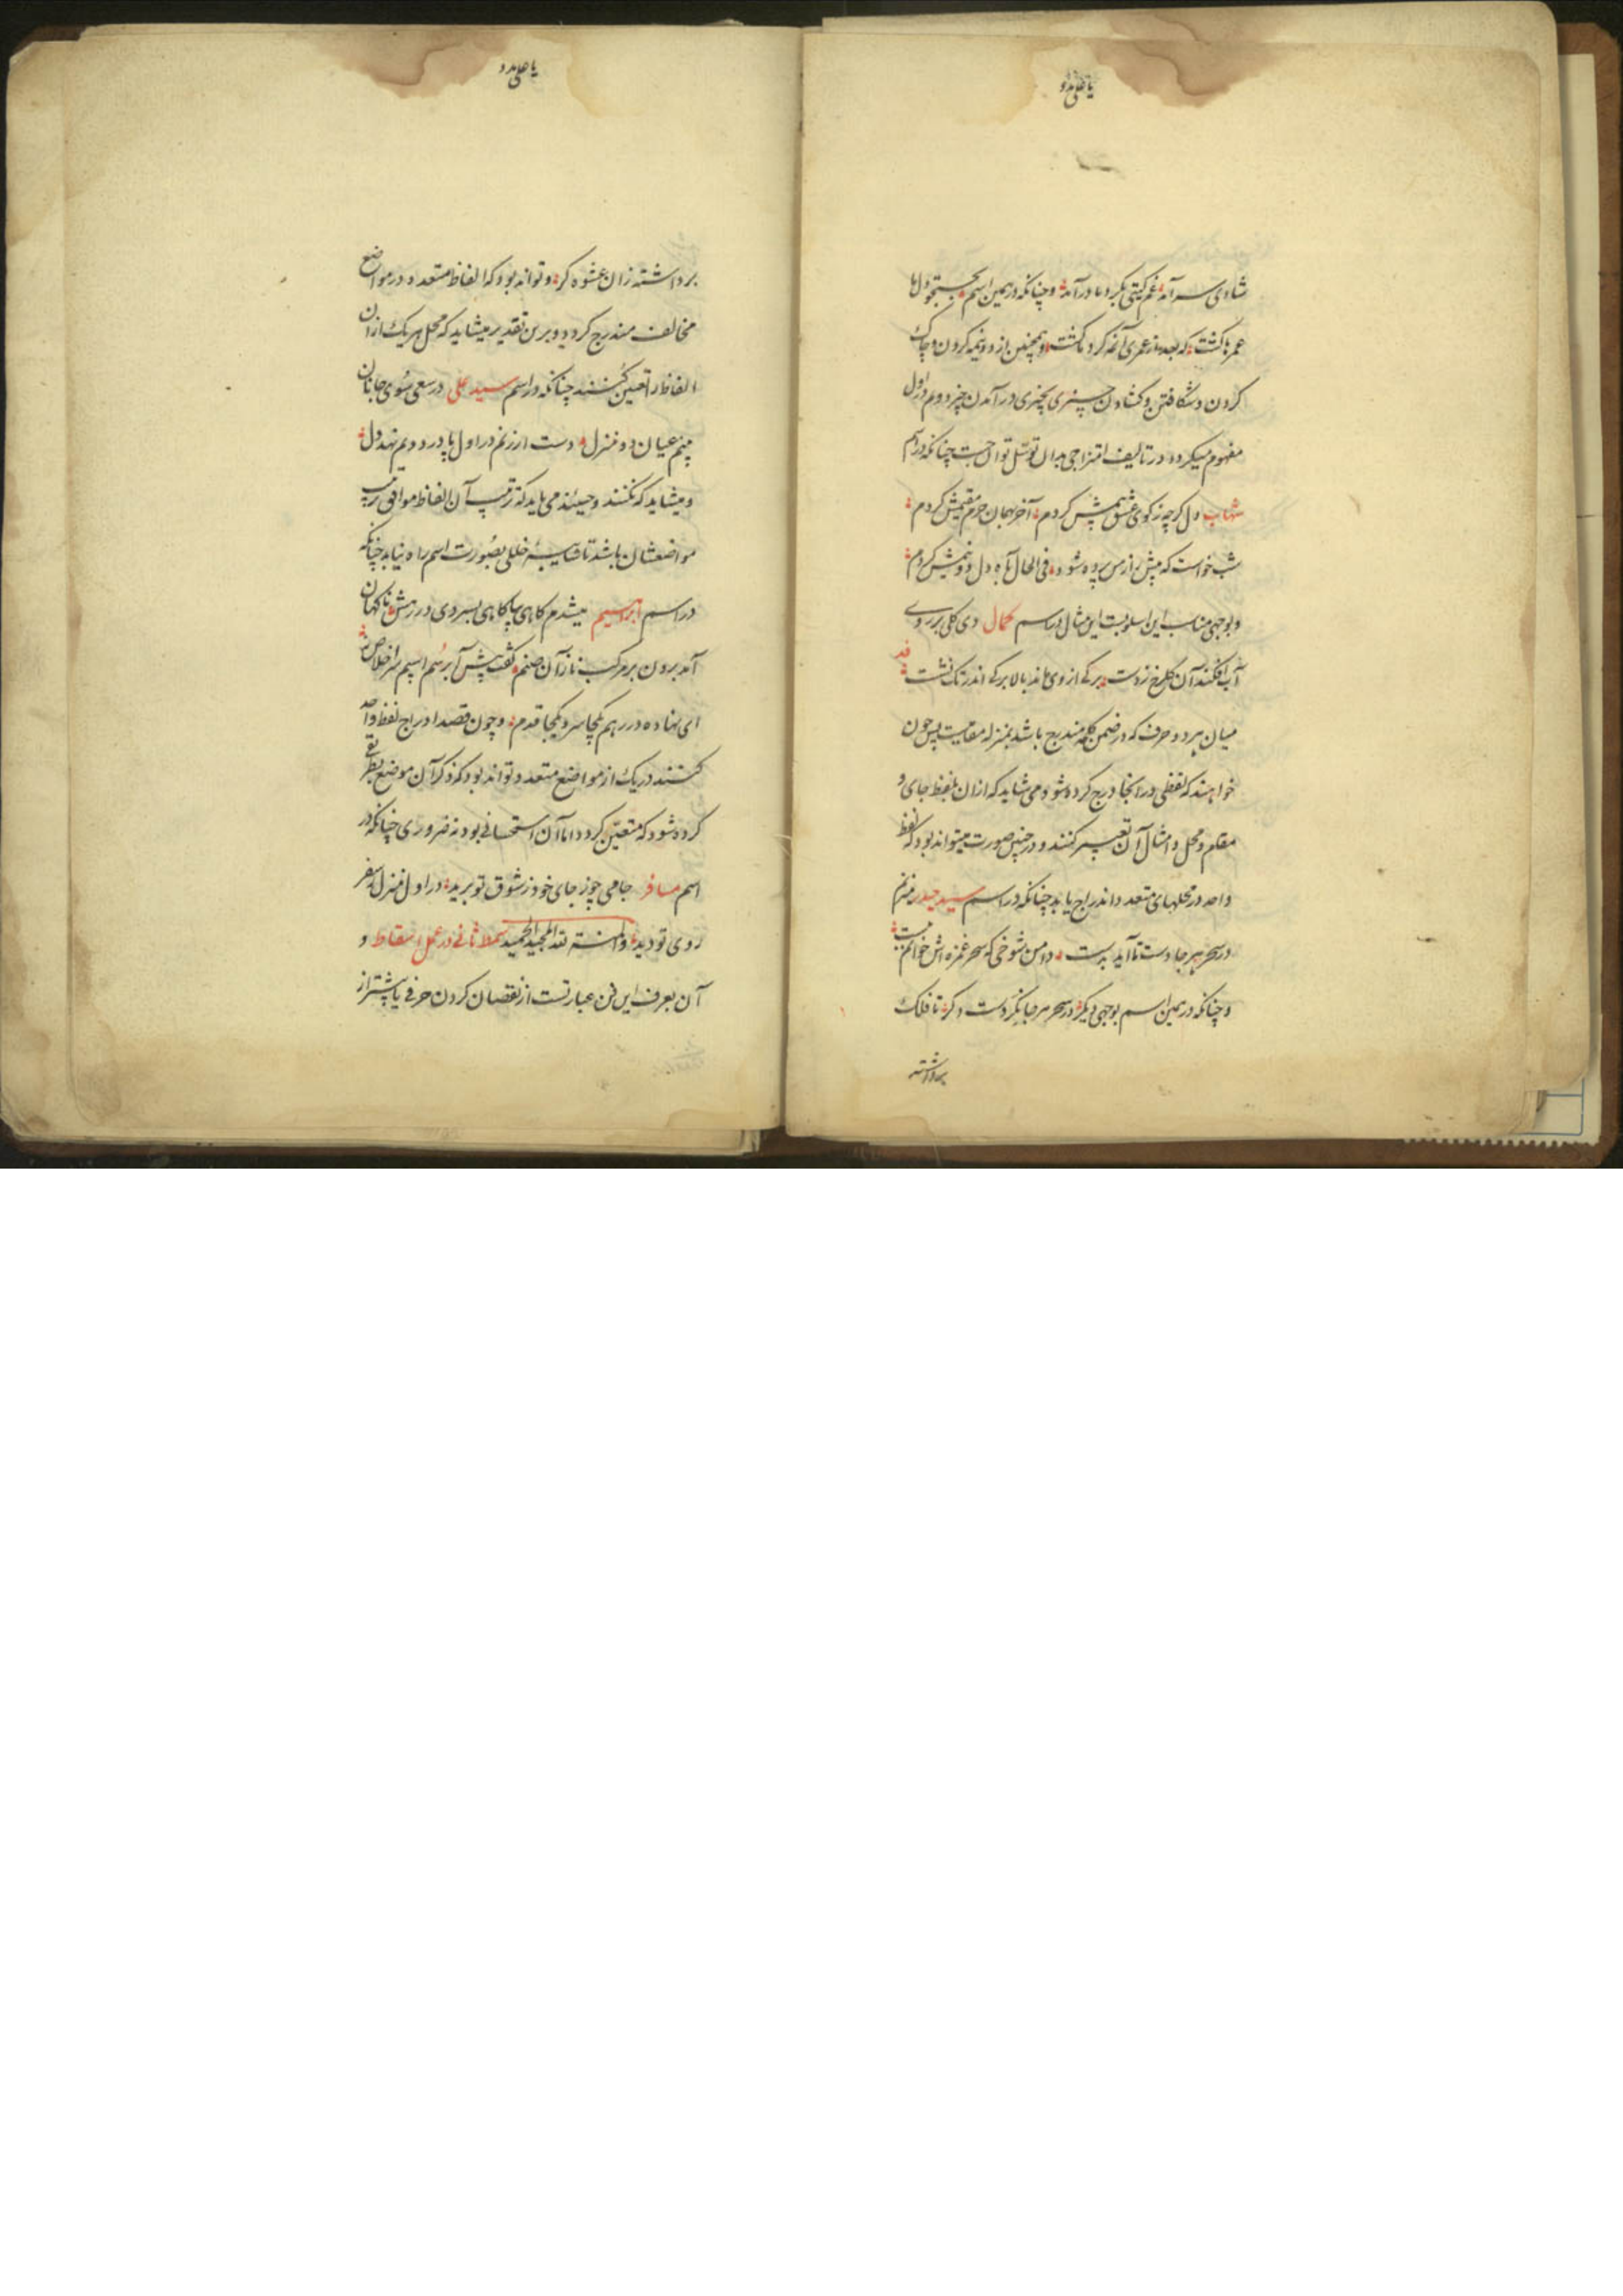 یا علی مدد
شادی سر آمد غم گیتی بگرد ما درآمد و چنانکه در همین اسم بجستجو دل ما
عمر ما گشت که بعد از عمری آنمه گرد ما گشت و همچنین از دو نیمه کردن و چاک
کردن و شکافتن و گشادن چیزی بچیزی درآمدن چیز دوم در اول
مفهوم میگردد در تالیف امتزاجی بدان توسل توان جست چنانکه در اسم
شهاب دل گرچه ز کوی عشق پیش کردم آخر بهمان حرم مقیمش کردم
شب خواست که پیش از من پرده شود فی الحال بآه دل دو نیمش کردم
و بوجهی مناسب این اسلوبست این مثال در اسم کمال دی گلی بر روی
آب افکند آن گلرخ ز دست برگی از وی ماند بالا برگی اندر تک نشست
میان هر دو حرف که در ضمن کلمه مندرج باشد بمنزله مقامیست پس چون
خواهند که لفظی در انجا درج کرده شود می شاید که ازان بلفظ جای و
مقام و محل و امثال آن تعبیر کنند و در چنین صورت میتواند بود که لفظ
واحد در محلهای متعدد اندراج یابد چنانکه در اسم سید حیدر میزنم
در سحر هر جا دست تا آید بدست دامن شوخی که سحر غمزه اش خوانم
و چنانکه در همین اسم بوجهی دیگر در سحر هر جا نگر دست دگر تا فلک
برداشته
یا علی مدد
برداشته زان عشوه گر و تواند بود که الفاظ متعدد در مواضع
مخالف مندرج گردد و برین تقدیر میشاید که محل هر یک ازان
الفاظ را تعیین کنند چنانکه در اسم سید علی در سعی سوی جانان
بینم عیان دو منزل دست ار زنم در اول پا در دویم نهد دل
و میشاید که نکنند و حینئذ می باید که ترتیب آن الفاظ موافق ترتیب
مواضعشان باشد تا شایبه خللی بصورت اسم راه نیابد چنانکه
در اسم ابراهیم میشدم گاهی بپا گاهی بسر وی در رهش ناگهان
آمد برون بر مرکب ناز آن صنم گفت پیش آ بر سم اسپم سر اخلاص نه
ای نهاده در رهم یکجا سر و یکجا قدم و چون قصد ادراج لفظ واحد
کنند در یک از مواضع متعدد تواند بود که ذکر آن موضع بطریقی
کرده شود که متعین گردد اما آن استحسانی بود نه ضروری چنانکه در
اسم مسافر جامی چو ز جای خود ز شوق تو برید در اول منزل سفر
روی تو دید والمنة لله المجید الحمید سمط ثانی در عمل اسقاط و
آن بعرف این فن عبارتست از نقصان کردن حرفی یا بیشتر از